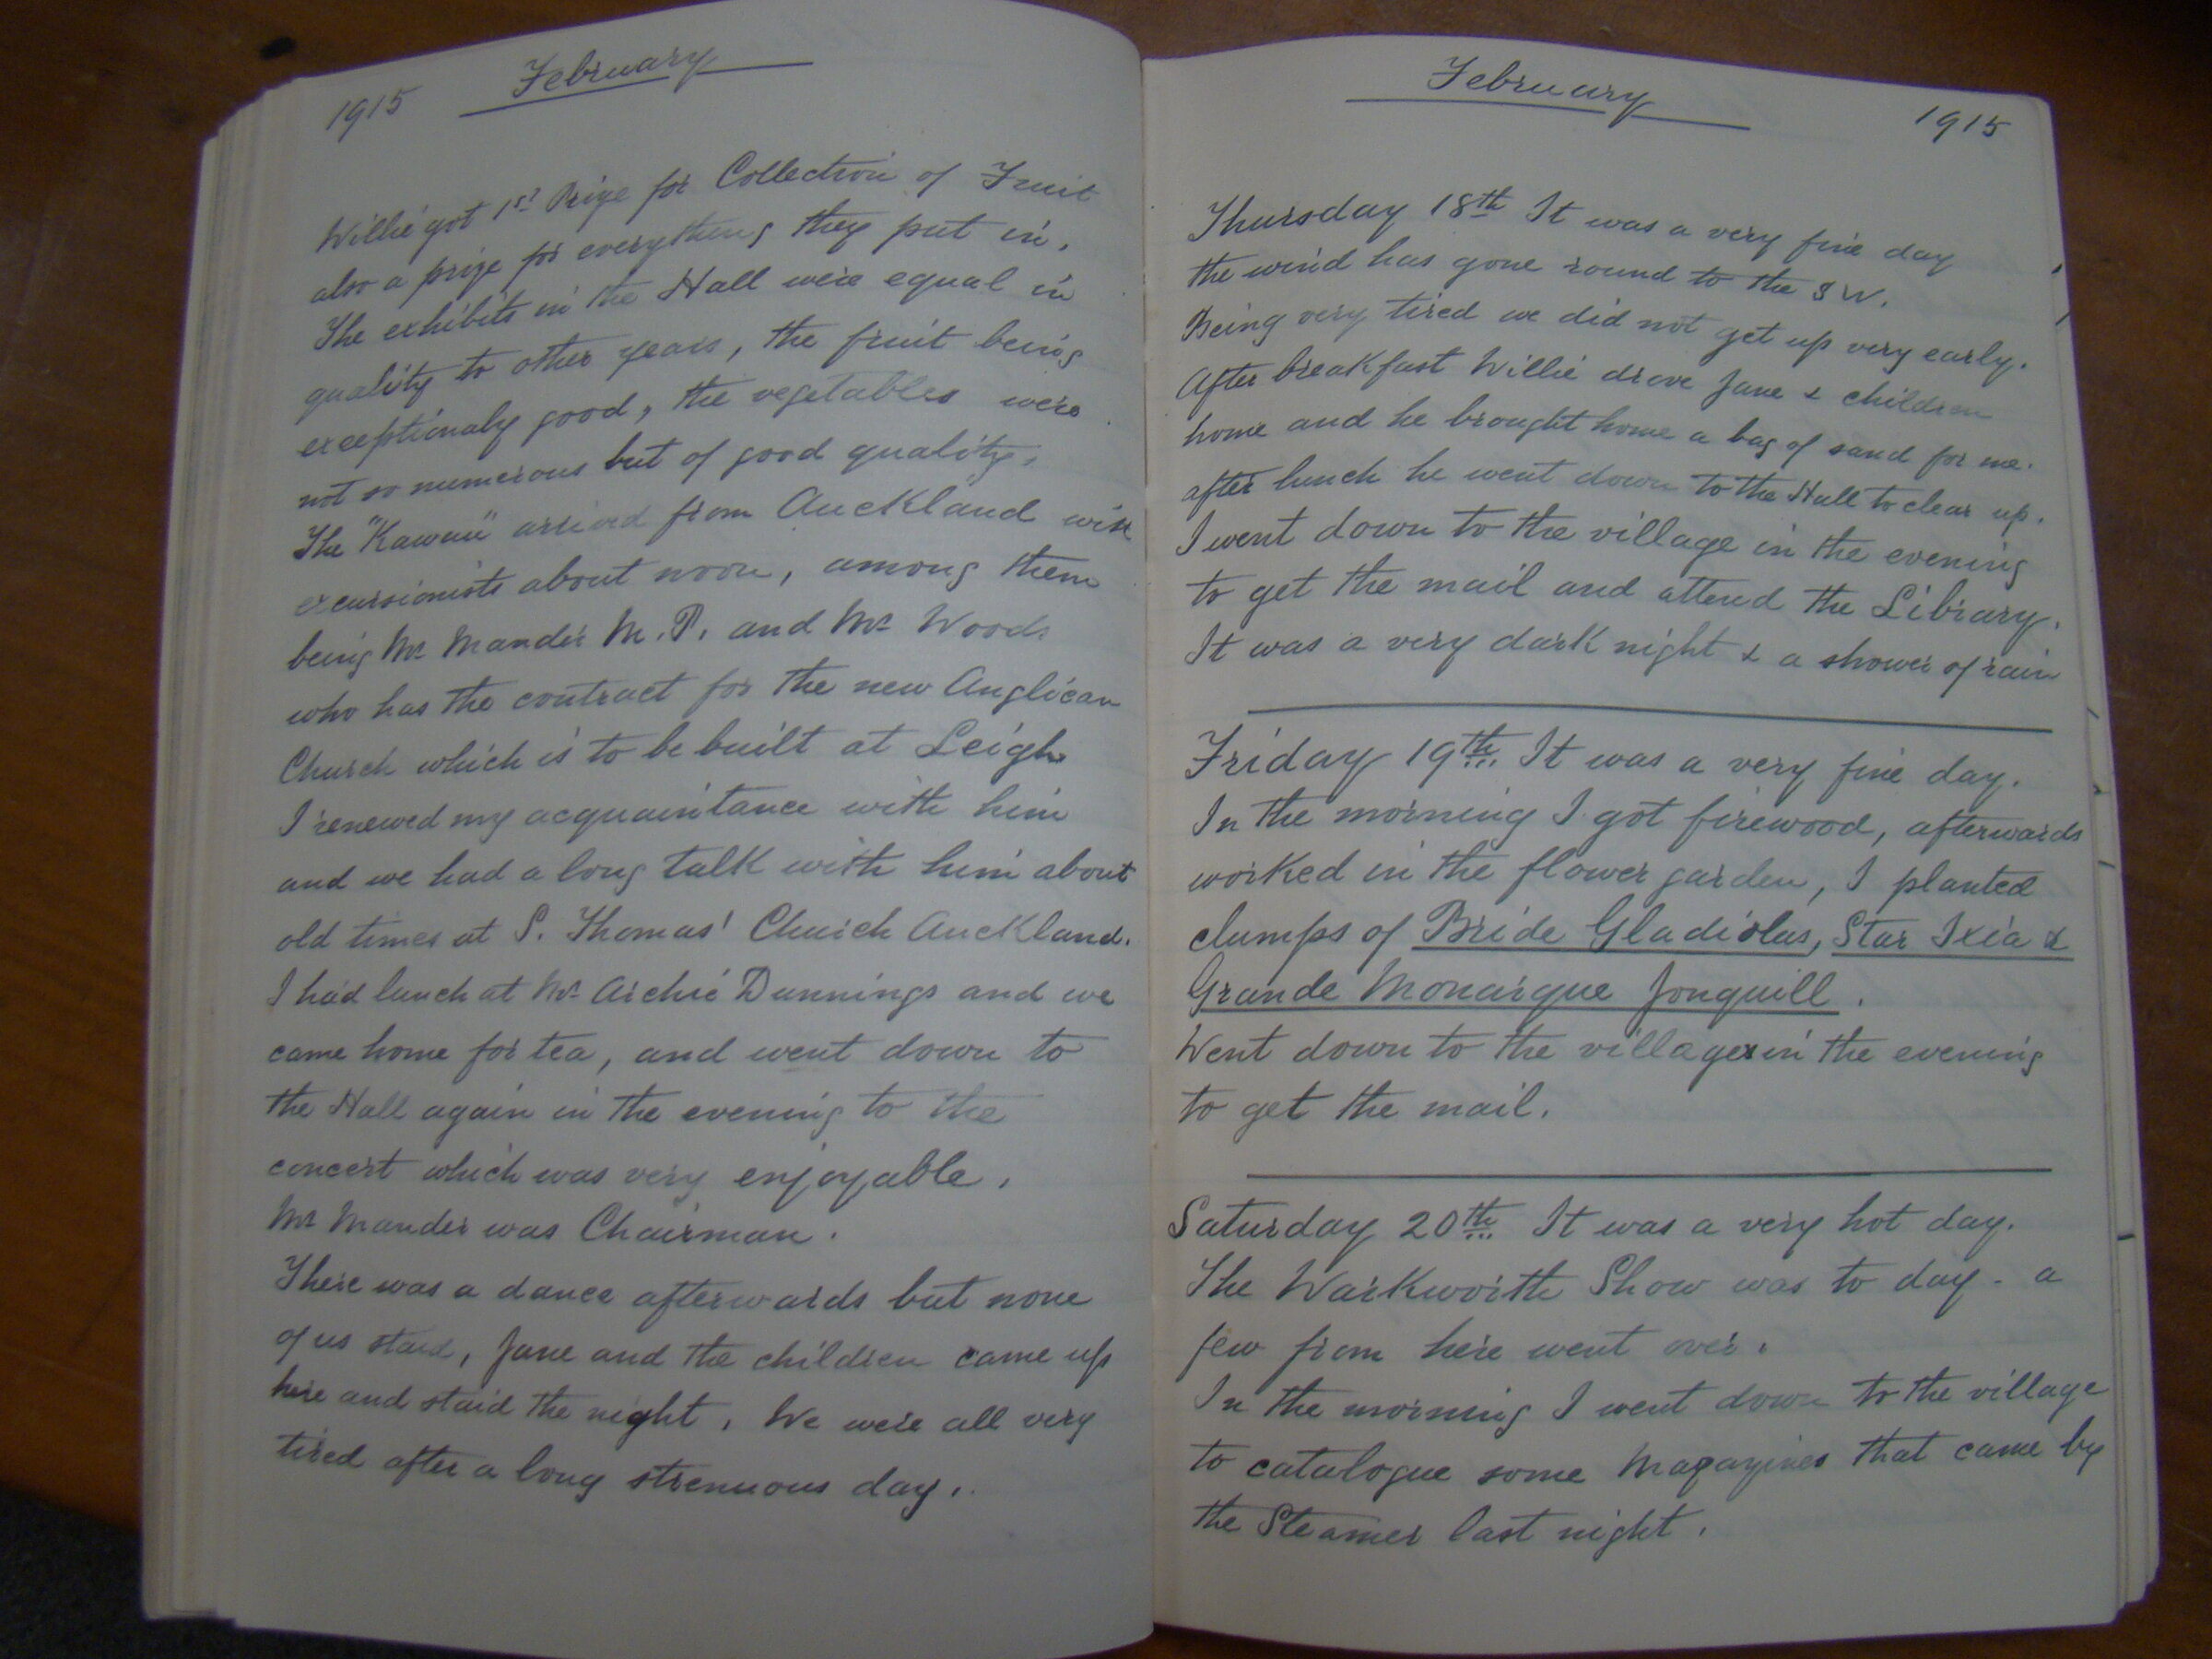 1915 February
Willie got 1st Prize for Collection of Fruit
also a prize for everything they put in.
The exhibits in the Hall were equal in
quality to other years, the fruit being
exceptionaly good, the vegetables were
not so numerous but of good quality.
The "Kawau" arrived from Auckland with
excursionists about noon, among them
being Mr Mander M.P. and Mr Woods
who has the contract for the new Anglican
Church which is to be built at Leigh
I renewed my acquaintance with him
and we had a long talk with him about
old times at S. Thomas' Church Auckland.
I had lunch at Mr Archie Dunnings and we
came home for tea, and went down to
the Hall again in the evening to the
concert which was very enjoyable.
Mr Mander was Chairman.
There was a dance afterwards but none
of us staid, Jane and the children came up
here and staid the night. We were all very
tired after a long strenuous day.
February 1915
Thursday 18th It was a very fine day
the wind has gone round to the S W.
Being very tired we did not get up very early.
After breakfast Willie drove Jane & children
home and he brought home a bag of sand for me.
after lunch he went down to the Hall to clear up.
I went down to the village in the evening
to get the mail and attend the Library.
It was a very dark night & a shower of rain
Friday 19th It was a very fine day.
In the morning I got firewood, afterwards
worked in the flower garden, I planted
clumps of Bride Gladiolus, Star Ixia &
Grande Monarque Jonquill.
Went down to the village in the evening
to get the mail.
Saturday 20th It was a very hot day.
The Warkworth Show was to day - a
few from here went over.
In the morning I went down to the village
to catalogue some Magazines that came by
the Steamer last night.